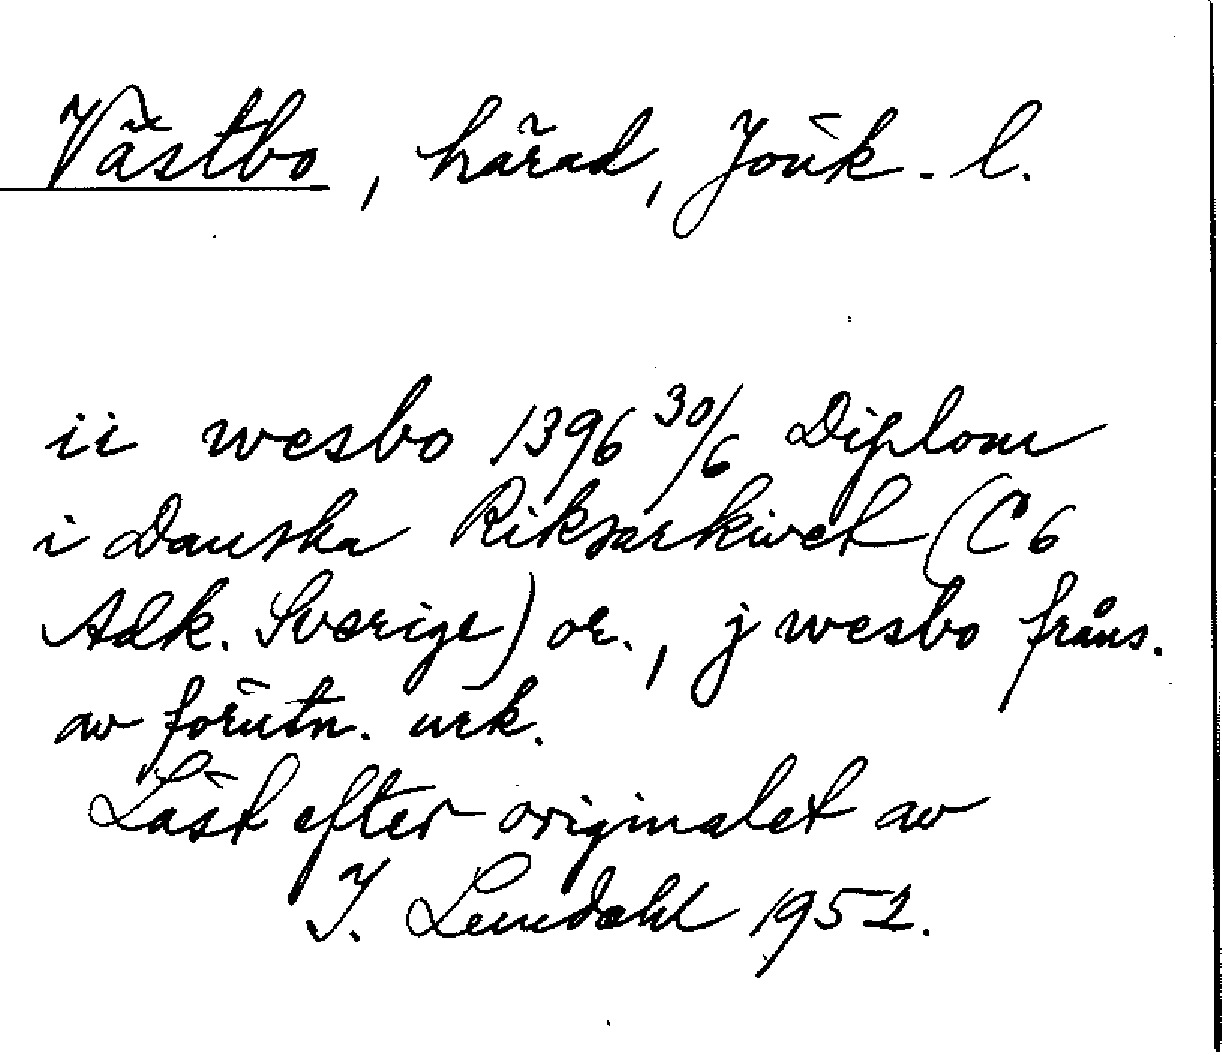 Västbo, härad, Jönk. l.
ii wesbo 1396 30/6 Diplom
i Danska Riksarkivet (C6
Adk. Sverige) or., j wesbo frans.
av förutn. urk.
Läst efter originalet av
I. Lundahl 1952.